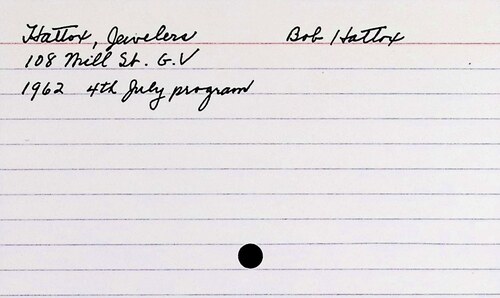 Hattox, Jewelers Bob Hattox
108 Mill St. G.V
1962 4th July program